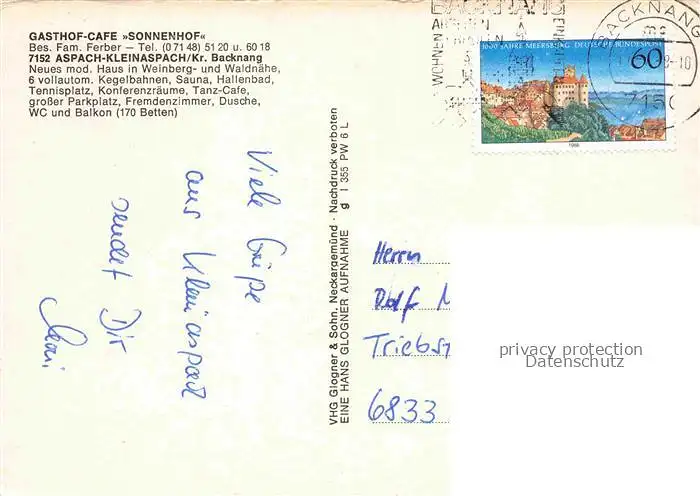 GASTHOF-CAFE »SONNENHOF«
Bes. Fam. Ferber – Tel. (0 71 48) 51 20 u. 60 18
7152 ASPACH-KLEINASPACH/Kr. Backnang
Neues mod. Haus in Weinberg- und Waldnähe,
6 vollautom. Kegelbahnen, Sauna, Hallenbad,
Tennisplatz, Konferenzräume, Tanz-Cafe,
großer Parkplatz, Fremdenzimmer, Dusche,
WC und Balkon (170 Betten)
BACKNANG
WOHNEN
1000 JAHRE MEERSBURG DEUTSCHE BUNDESPOST
60
1988
BACKNANG
7150
Viele Grüße
aus Kleinaspach
sendet Dir
VHG Glogner & Sohn, Neckargemünd · Nachdruck verboten
EINE HANS GLOGNER AUFNAHME g I 355 PW 6 L
Herrn
Dolf
Triebst
6833
privacy protection
Datenschutz